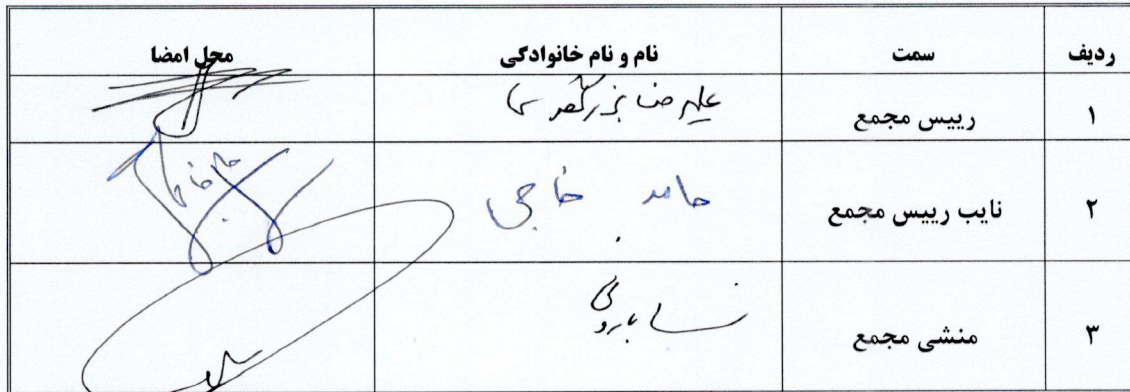 ردیف سمت نام و نام خانوادگی محل امضا
۱ رییس مجمع علیرضا
۲ نایب رییس مجمع حامد خاجی
۳ منشی مجمع